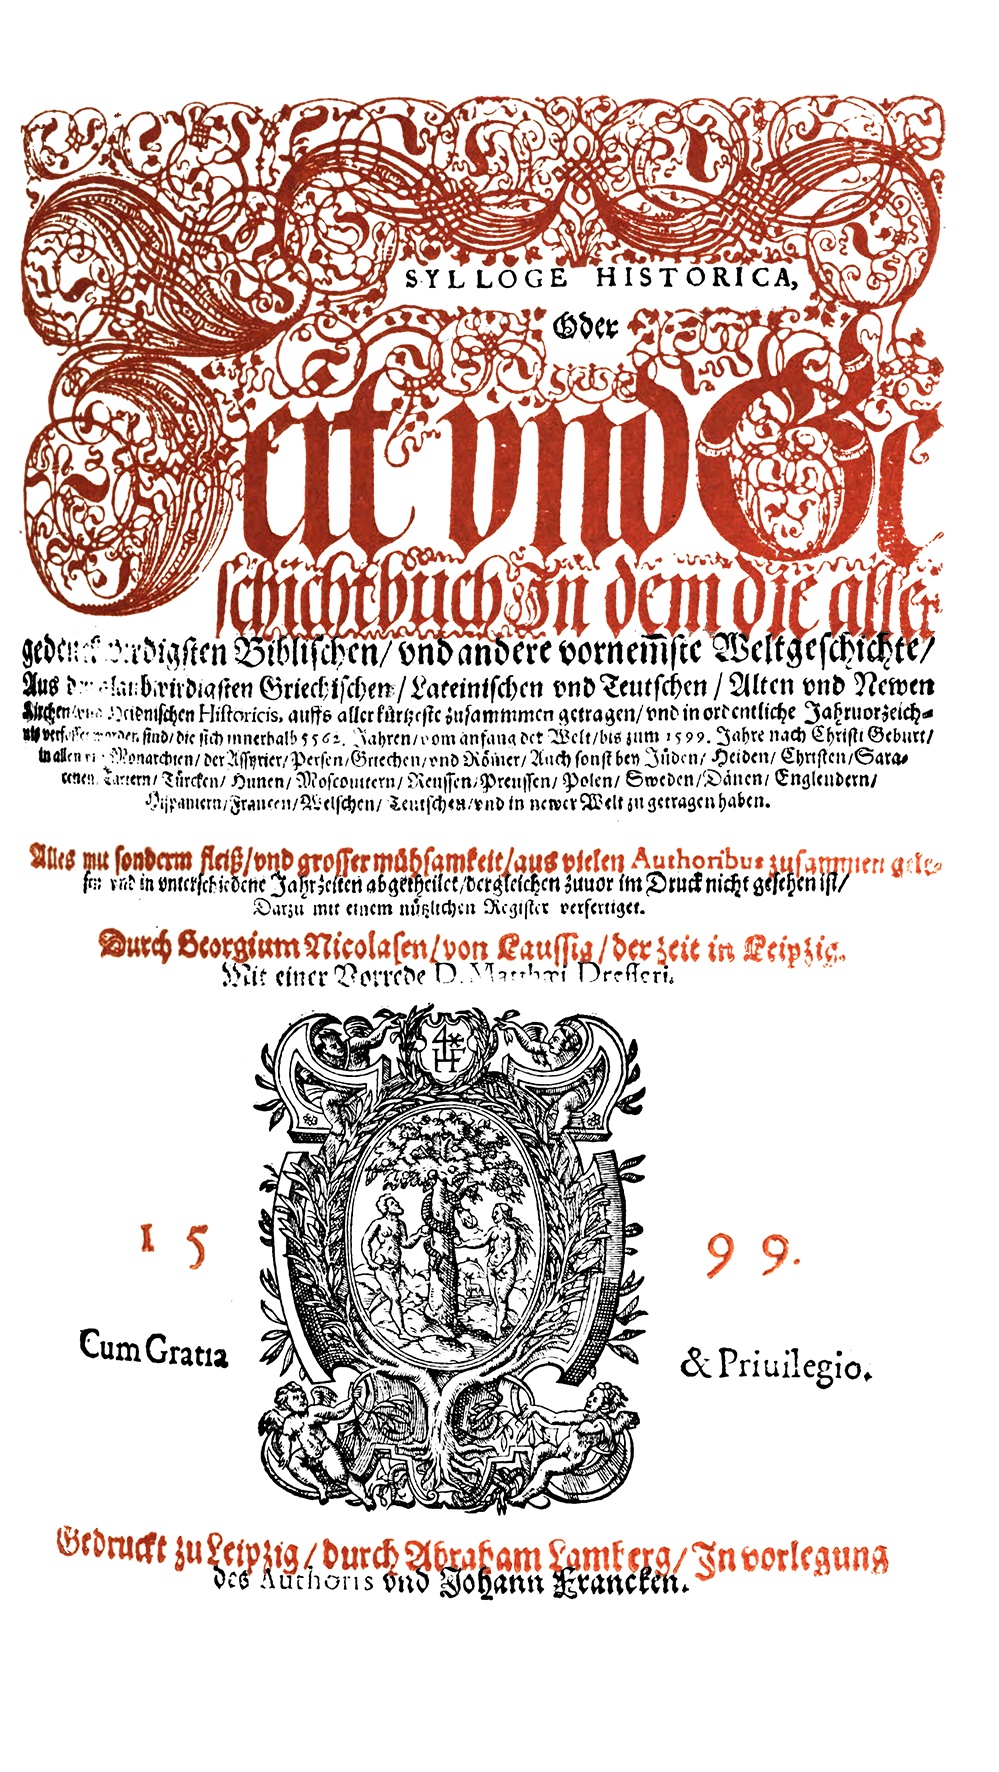 SYLLOGE HISTORICA,
Oder
Zeit vnd Ge
schichtbuch In dem die aller
gedenckwirdigsten Biblischen/ vnd andere vornem̃ste Weltgeschichte/
Aus den glaubwirdigsten Griechischen/ Lateinischen vnd Teutschen / Alten vnd Newen
Kirchen vnd Heidnischen Historicis, auffs allerkürtzeste zusammmen getragen/ vnd in ordentliche Jahruorzeich-
nis verfasset worden sind/ die sich innerhalb 5562. Jahren/ vom anfang der Welt/ bis zum 1599. Jahre nach Christi Geburt/
in allen Monarchien/ der Assyrier/ Persen/ Griechen/ vnd Römer/ Auch sonst bey Jüden/ Heiden/ Christen/ Sara-
cenen/ Tattern/ Türcken/ Hunen/ Moscouitern/ Reussen/ Preussen/ Polen/ Sweden/ Dänen/ Englendern/
Hispaniern/ Francen/ Welschen/ Teutschen/ vnd in newer Welt zu getragen haben.
Alles mit sonderm fleiß/ vnd grosser mühsamkeit/ aus vielen Authoribus zusammen gele-
sen vnd in vnterschiedene Jahrzeiten abgetheilet/ dergleichen zuuor im Druck nicht gesehen ist/
Darzu mit einem nützlichen Register verfertiget.
Durch Georgium Nicolasen/ von Laussig/ der zeit in Leipzig.
Mit einer Vorrede D. Matthæi Dresseri.
4 HF
15 99.
Cum Gratia & Priuilegio.
Gedruckt zu Leipzig/ durch Abraham Lamberg/ In vorlegung
des Authoris vnd Johann Francken.